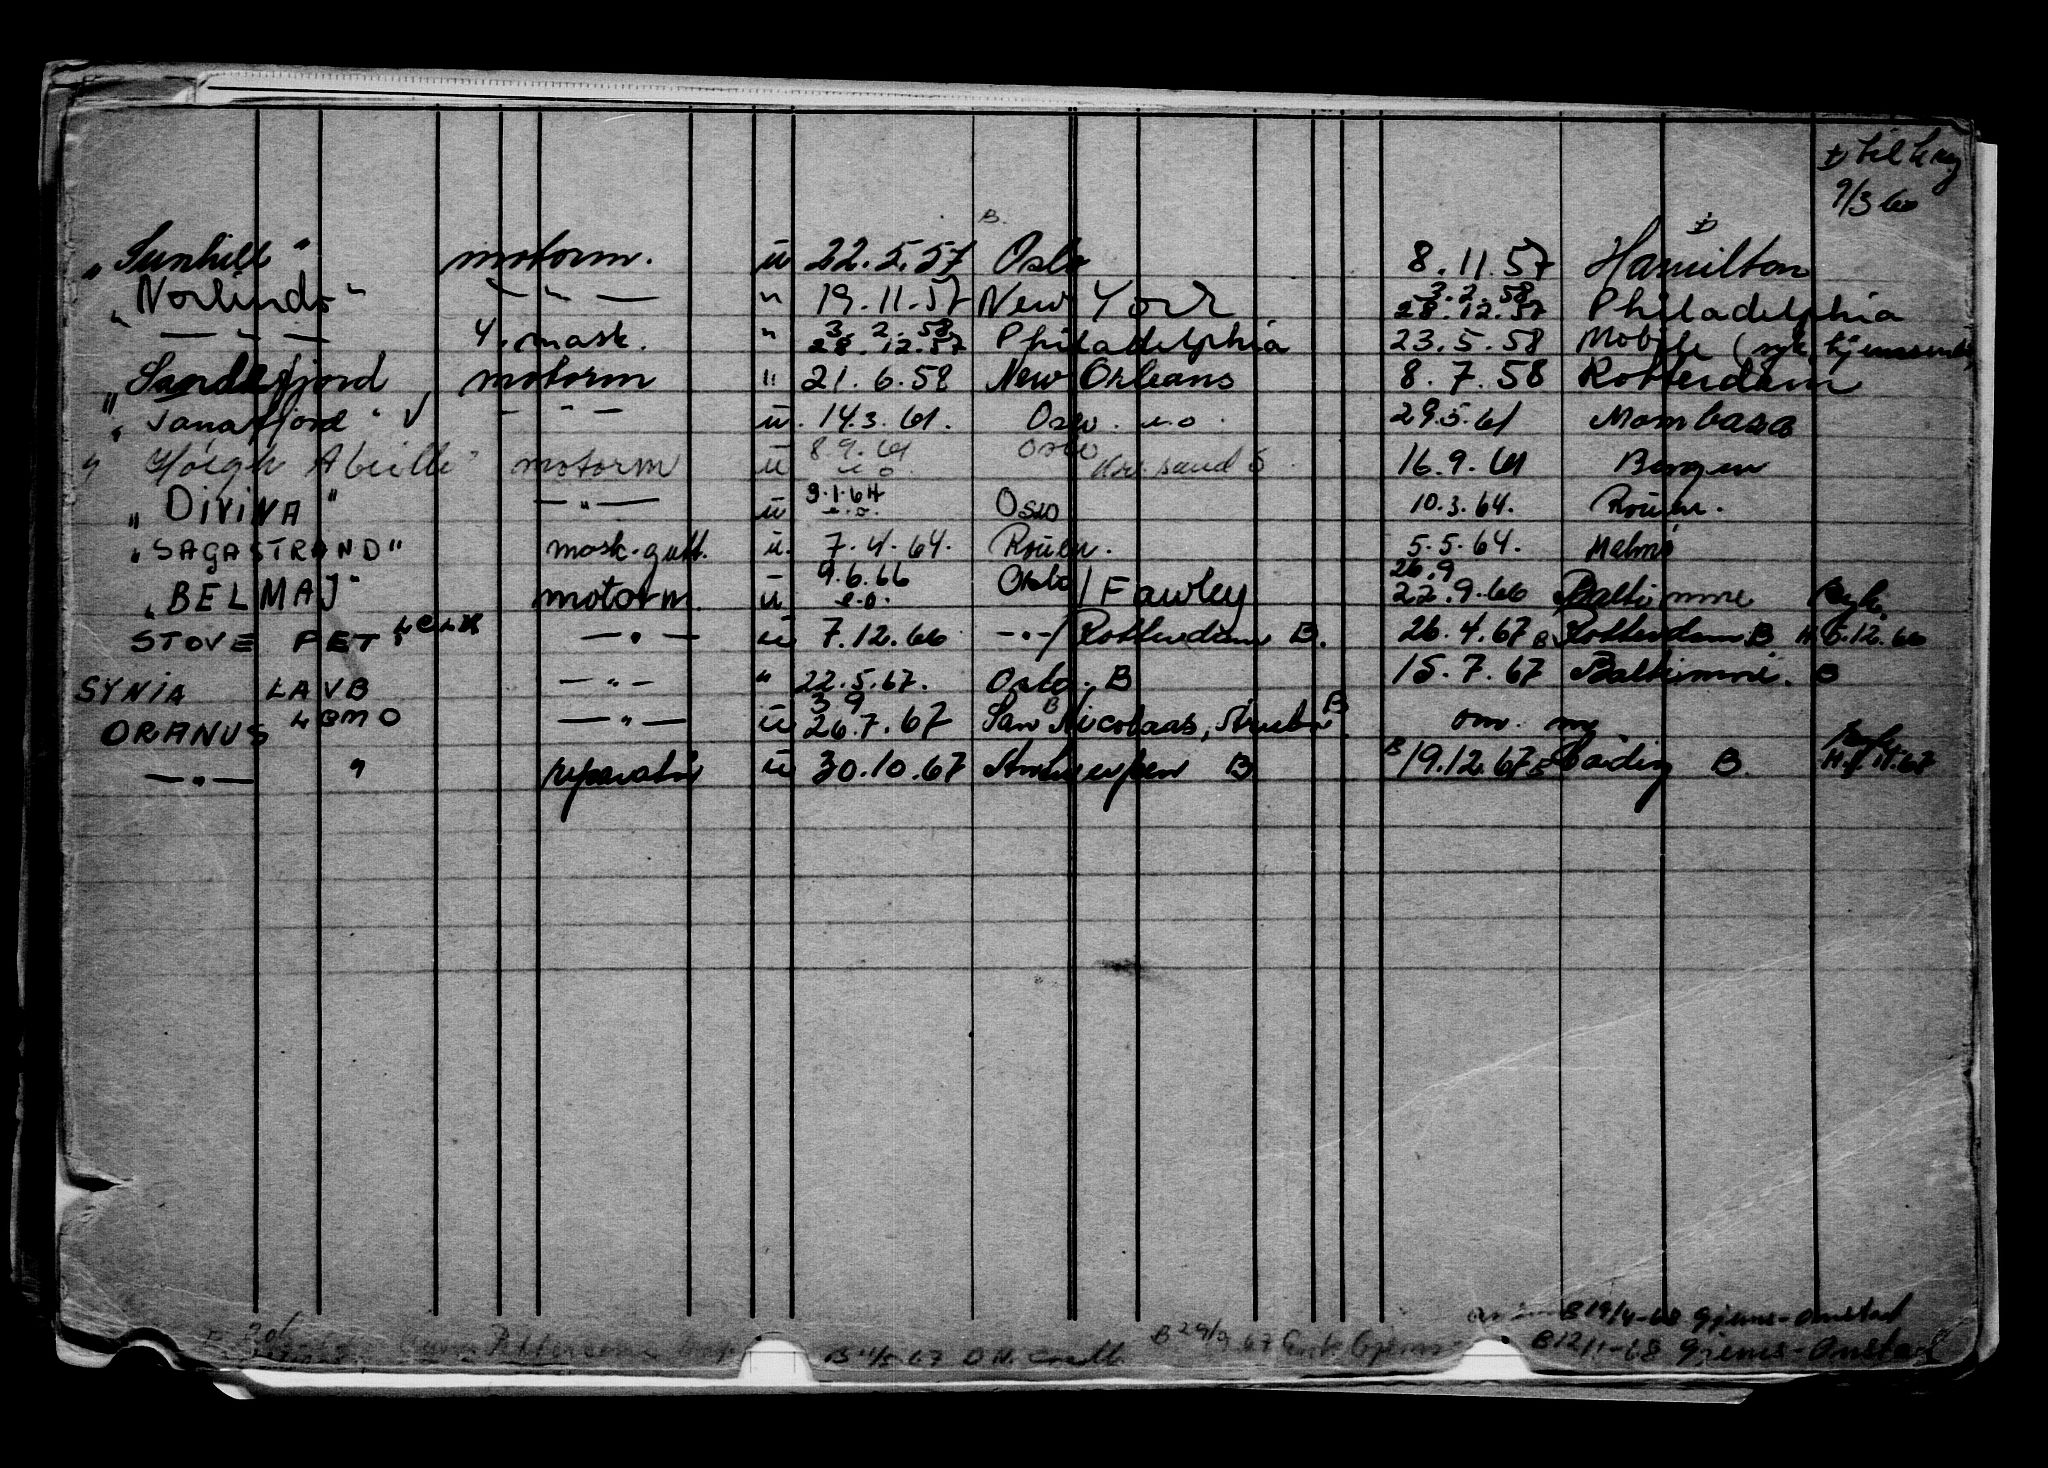 9/3 60
"Sunhill" motorm. ü 22.5.57 Oslo 8.11.57 Hamilton
"Norlinds" — " — " 19.11.57 New York 3.2.58 28.12.57 Philadelphia
— " — 4. mask. " 3.2.58 28.12.57 Philadelphia 23.5.58 Mobile
"Sandefjord motorm " 21.6.58 New Orleans 8.7.58 Rotterdam
"Tanafjord" V — " — ü. 14.3.61. Oslo. u.o. 29.5.61 Mombasa
" Høegh Abeille" motorm ü 8.9.61 u.o. Oslo Kr.sand S. 16.9.61 Bergen
"DIVINA" — " — ü 9.1.64 u.o. Oslo 10.3.64. Rouen.
"SAGASTRAND" mask.gutt. ü. 7.4.64. Rouen. 5.5.64. Malmø
"BELMAJ" motorm. ü 9.6.66 u.o. Oslo / Fawley 26.9 22.9.66 Baltimore
STOVE PET LCLX — " — ü 7.12.66 — " — / Rotterdam B. 26.4.67 B Rotterdam B H 6.12.66
SYNIA LAVB — " — " 22.5.67. Oslo, B 15.7.67 Baltimore. B
ORANUS LBMO — " — ü 3 9 26.7.67 San Nicolaas, Aruba B om. my
— " — " reparatør ü 30.10.67 Antwerpen B B 19.12.67 B B. H. 67
B 19/4-68 Gjems-Onstad
B 29/9 67 Gjems
B 12/11-68 Gjems-Onstad